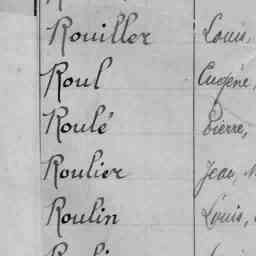 Rouiller Louis,
Roul Eugène,
Roulé Pierre,
Roulier Jean,
Roulin Louis,